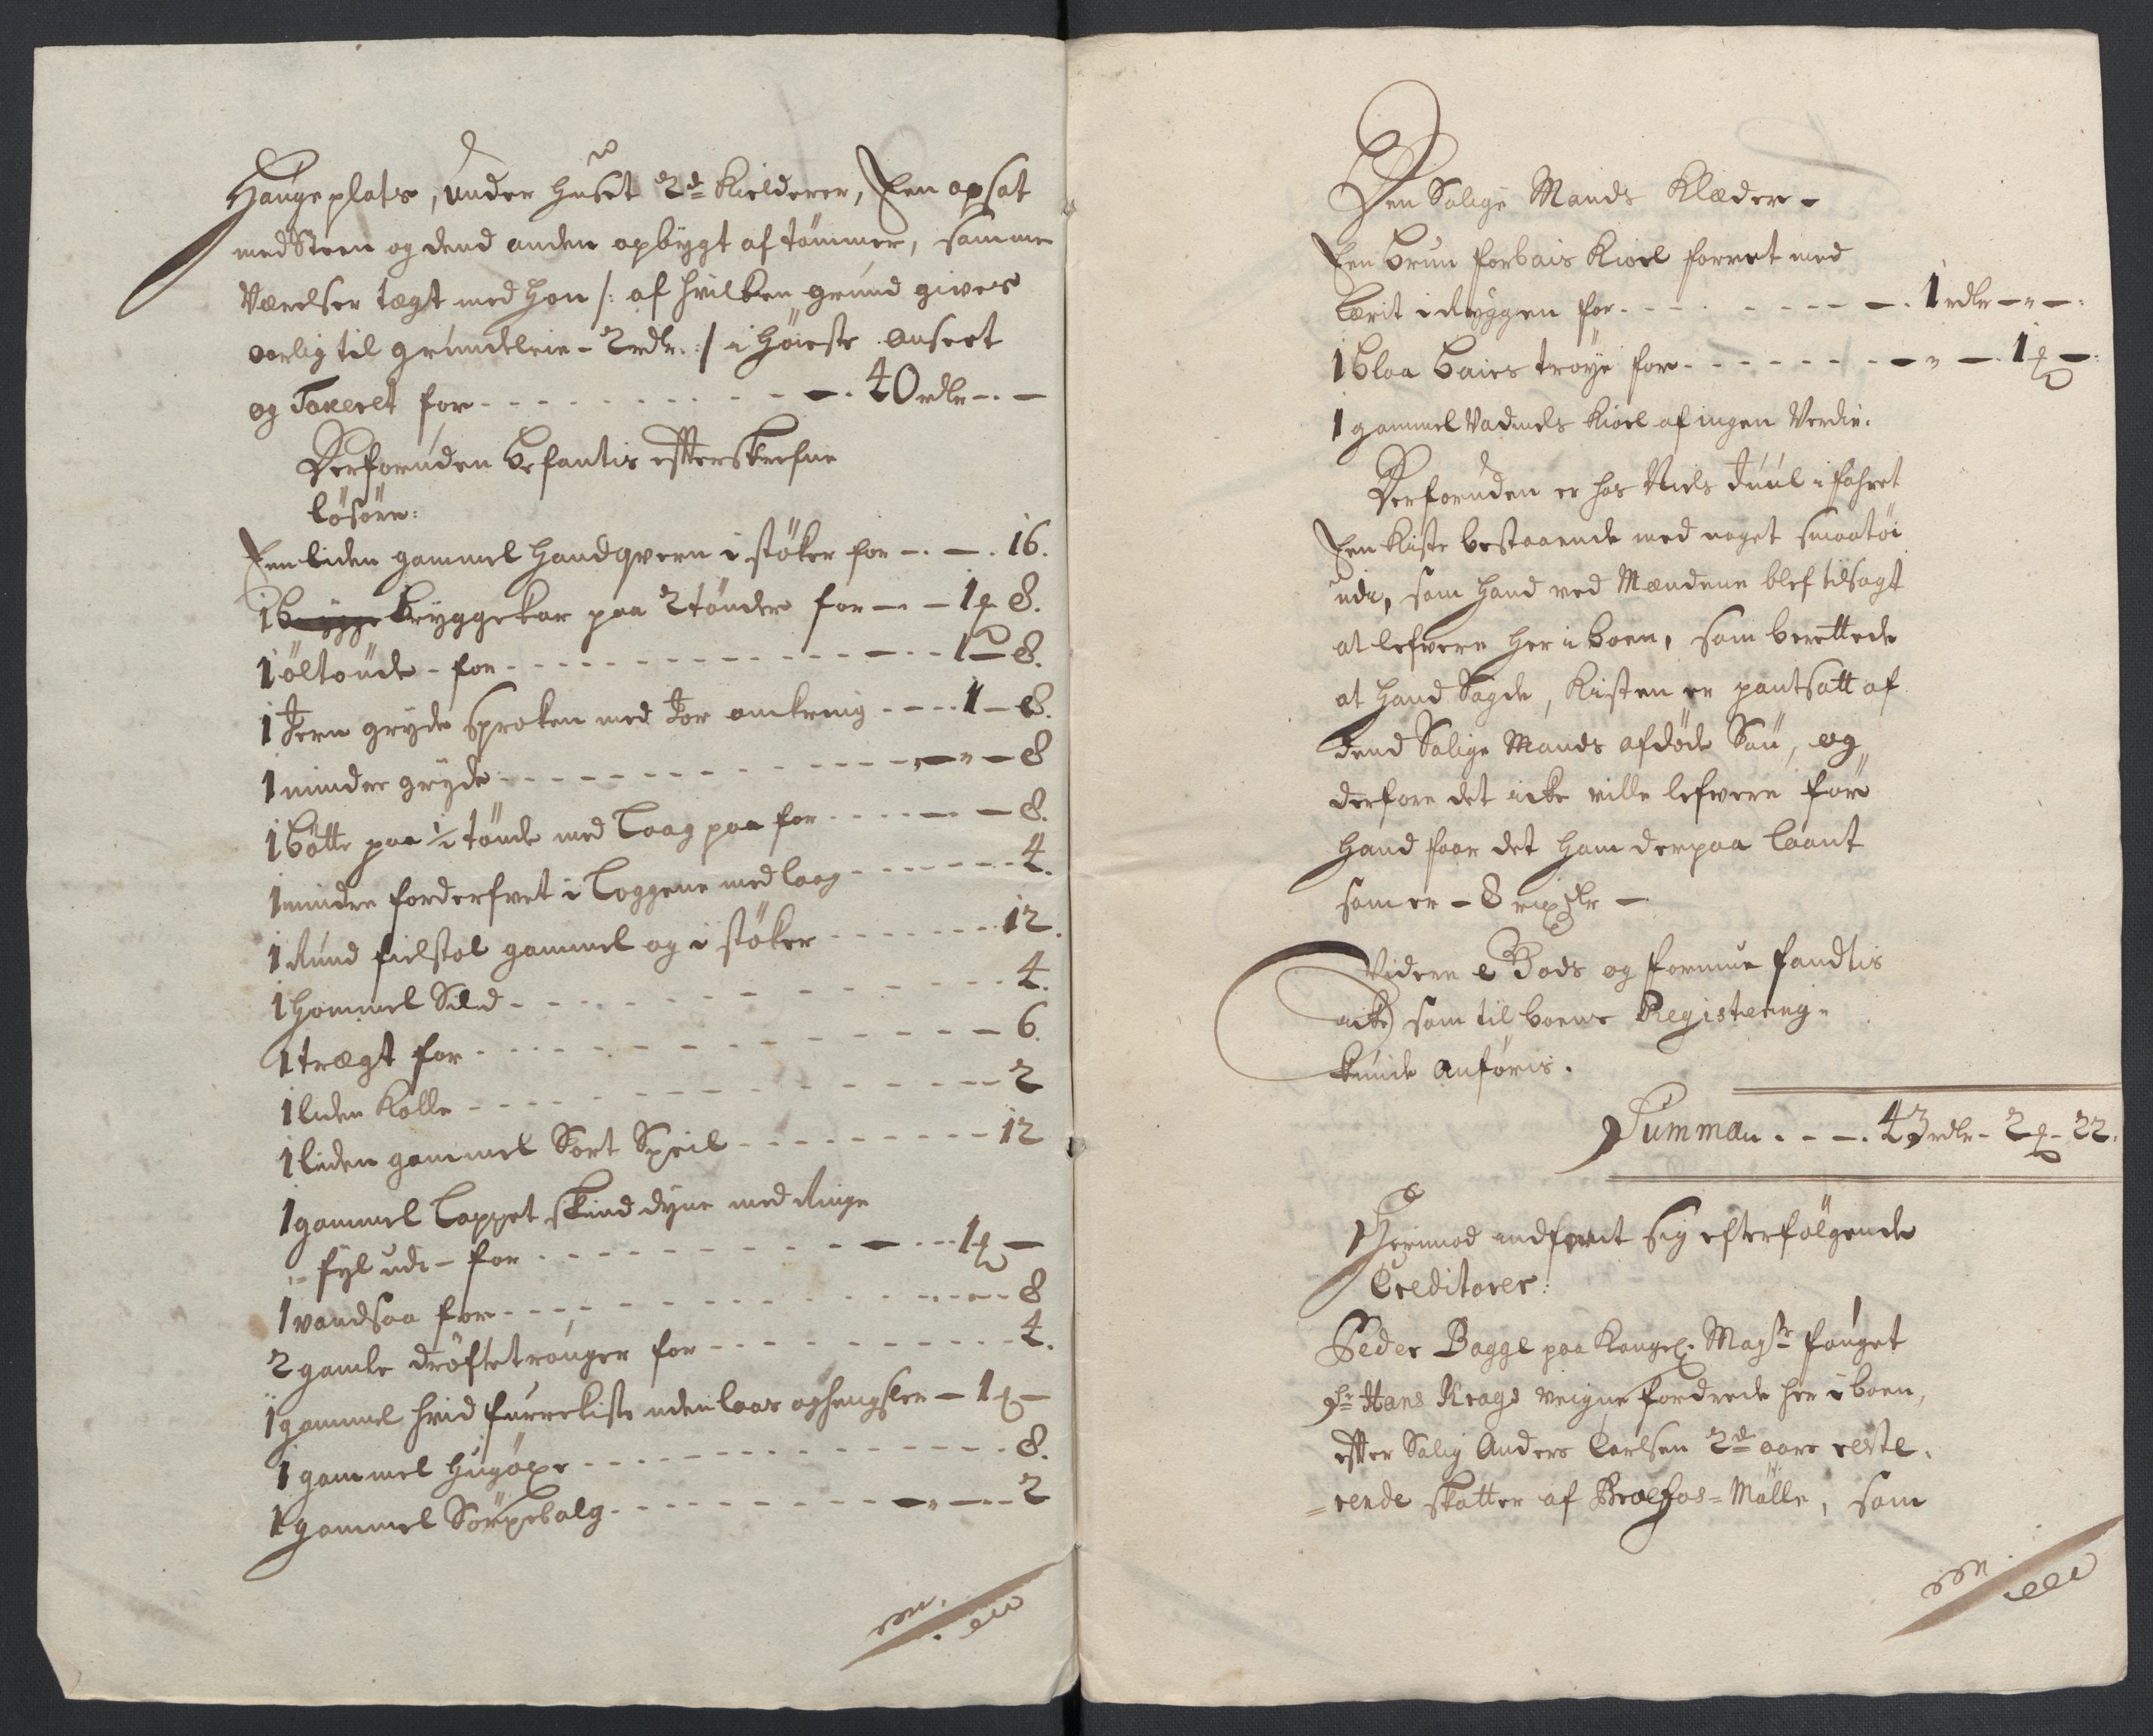 Haugeplats, under huset 2de Kielderer, Een opsat
med Steen og dend anden opbygt af tømmer, samme
Værelser tægt med Hon /: af hvilken grund gives
aarlig til grundeleie - 2 rdlr. :/ i høieste anseet
og Taxeret for - - - 40 rdlr - . -
Derforuden befantis efterskrefne
løsøre:
Een liden gammel handqvern i støker for - . - . 16.
1 brygge bryggekar paa 2 tønder for - - 1 ƒ 8.
1 øltønde - for - - - 1 - 8.
1 Jern gryde sproken med Jer omkring - - - 1 - 8.
1 minder gryde - - - " - 8
1 bøtte paa 1/2 tønde med Laag paa for - - - 8.
1 mindre forderfvet i Loggene med laag - - - 4.
1 Rund fielstol gammel og i støker - - - 12.
1 Hommel Sild - - - 4.
1 trægt for - - - 6.
1 liden Kolle - - - 2
1 liden gammel Sort Speil - - - 12
1 gammel Lappet skind dyne med Ringe
= fyl udi - for - - - 1 ƒ -
1 vandsaa for - - - 8
2 gamle drøftetrouger for - - - 4.
1 gammel hvid furrekiste uden laas ophengsler - 1 ƒ -
1 gammel hugøxe - - - 8.
1 gammel Sørpebalg - - - " - 2
Den Salige Mands Klæder -
Een brun forbais Kioel foeret med
Lærit i Ryggen for - - - 1 rdlr - " - :
1 blaa baies trøye for - - - " - 1 ƒ - :
1 gammel Vadmels Kioel af ingen Verdie.
Derforuden er hos Niels Juul i fahret
Een Kiste bestaaende med noget smaatøi
udi, som hand ved Mændene blef tilsagt
at lefvere her i boen, som berettede
at hand Sagde, Kisten er pantsatt af
dend Salige Mands afdøde Søn, og
derfore det icke ville lefvere før
hand faar det ham derpaa laant
som er - 8 rixdlr -
Videre e Gods og formue fandtis
icke som til boens Registering-
kunde anføris.
Summa - - - . 43 rdlr - 2 ƒ - 22.
Herimod indfandt sig efterfølgende
Creditorer:
Peder Bagge paa Kongel. Mayts fouget
Sr Hans Krags veigne fordrede her i boen,
efter Salig Anders Carlsen 2de aars reste-
= rende skatter af = Mølle, som